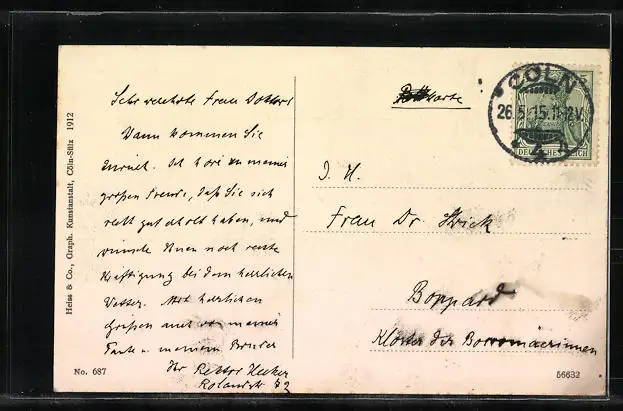 Sehr verehrte Frau Doktor!
Wann kommen Sie
zurück. Ich höre zu meiner
großen Freude, daß Sie sich
recht gut erholt haben, und
wünsche Ihnen noch rechte
Kräftigung bei dem herrlichen
Wetter. Mit herzlichen
Grüßen auch von meiner
Tante u. meinem Bruder
Ihr Rektor
Rolandstr 72
Postkarte
I. H.
Frau Dr.
Boppard
Kloster der Borromäerinnen
CÖLN
26.5.15.11-12V.
DEUTSCHES REICH
5
Heiss & Co., Graph. Kunstanstalt, Cöln-Sülz 1912
No. 687
56632